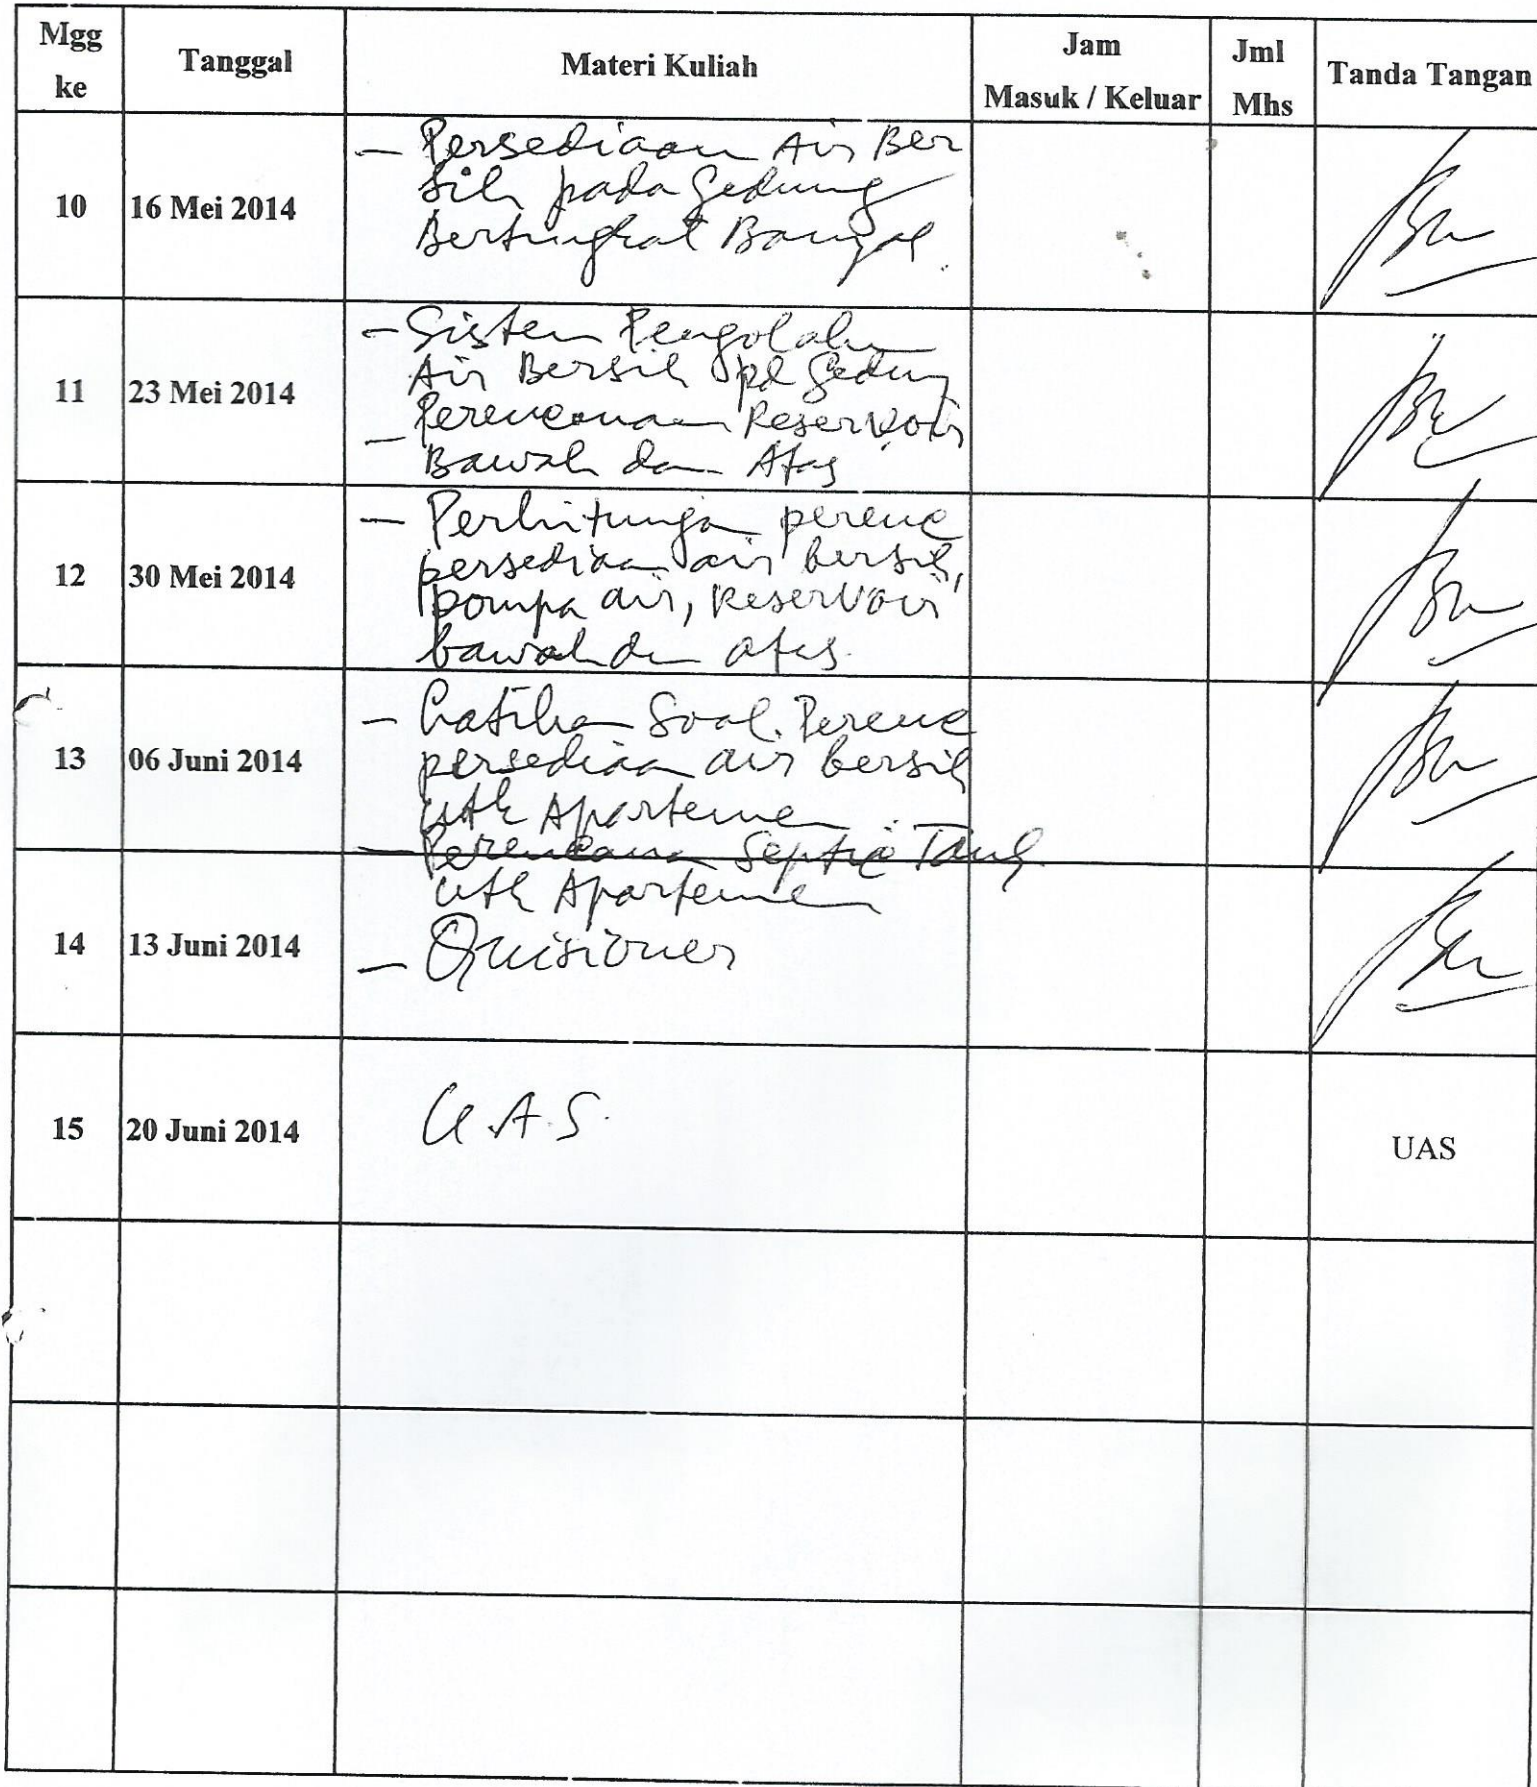 Mgg ke Tanggal Materi Kuliah Jam Masuk / Keluar Jml Mhs Tanda Tangan
10 16 Mei 2014
- Persediaan Air Ber
sih pada Gedung
Bertingkat Banyak.
11 23 Mei 2014
- Sistem Pengolahn
Air Bersih pd Gedung
- Perencanaan Reservoir
Bawah dan Atas
12 30 Mei 2014
- Perhitungan perenc
persediaan air bersih,
pompa air, Reservoir
bawah dn atas.
13 06 Juni 2014
- Latihan Soal. Perenc
persediaan air bersih
utk Apartemen
- Perencana Septic Tank
utk Apartemen
14 13 Juni 2014
- Quisioner
15 20 Juni 2014 U.A.S. UAS